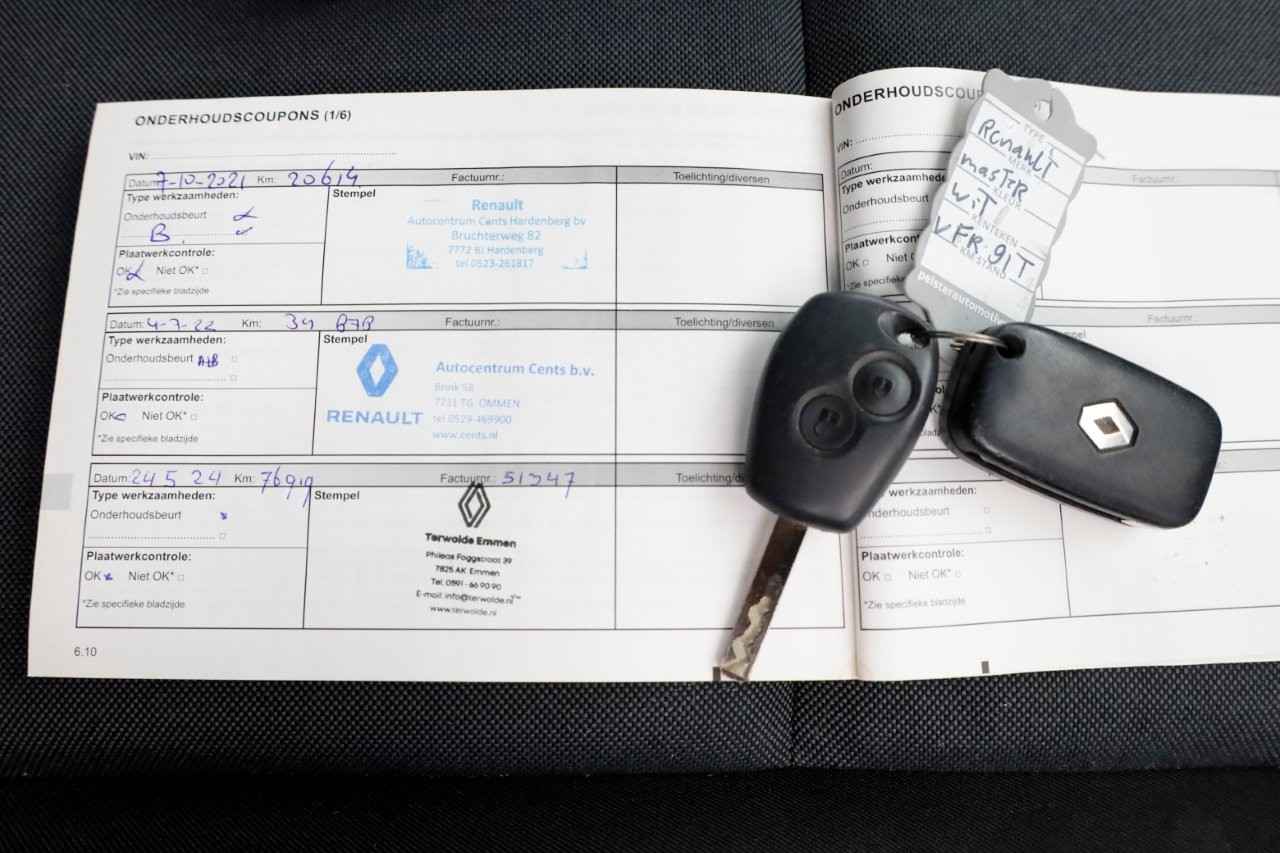 ONDERHOUDSCOUPONS (1/6)
VIN:
Datum: 7-10-2021 Km: 20614 Factuurnr.: Toelichting/diversen
Type werkzaamheden: Stempel
Onderhoudsbeurt
B
Plaatwerkcontrole:
OK Niet OK*
*Zie specifieke bladzijde
Renault
Autocentrum Cents Hardenberg bv
Bruchterweg 82
7772 BJ Hardenberg
tel 0523-261817
Datum: 4-7-22 Km: 39 878 Factuurnr.: Toelichting/diversen
Type werkzaamheden: Stempel
Onderhoudsbeurt A+B
Plaatwerkcontrole:
OK Niet OK*
*Zie specifieke bladzijde
RENAULT
Autocentrum Cents b.v.
Brink 58
7731 TG OMMEN
tel 0529-469900
www.cents.nl
Datum: 24 5 24 Km: 76919 Factuurnr.: 51347
Type werkzaamheden: Stempel
Onderhoudsbeurt
Plaatwerkcontrole:
OK Niet OK*
*Zie specifieke bladzijde
Terwolde Emmen
Phileas Foggstraat 39
7825 AK Emmen
Tel. 0591 - 66 90 90
E-mail: info@terwolde.nl
www.terwolde.nl
6.10
ONDERHOUDSCOUP
VIN:
Datum:
Type werkzaamhede
Onderhoudsbeurt
Plaatwerkcont
OK Niet
*Zie specifieke
Factuurnr.:
TYPE
RenauLT
MERK
masTer
KLEUR
wiT
KENTEKEN
VFR-91T
KM STAND
pelsterautomotive
Factuurnr.:
werkzaamheden:
nderhoudsbeurt
Plaatwerkcontrole:
OK Niet OK*
*Zie specifieke bladzijde